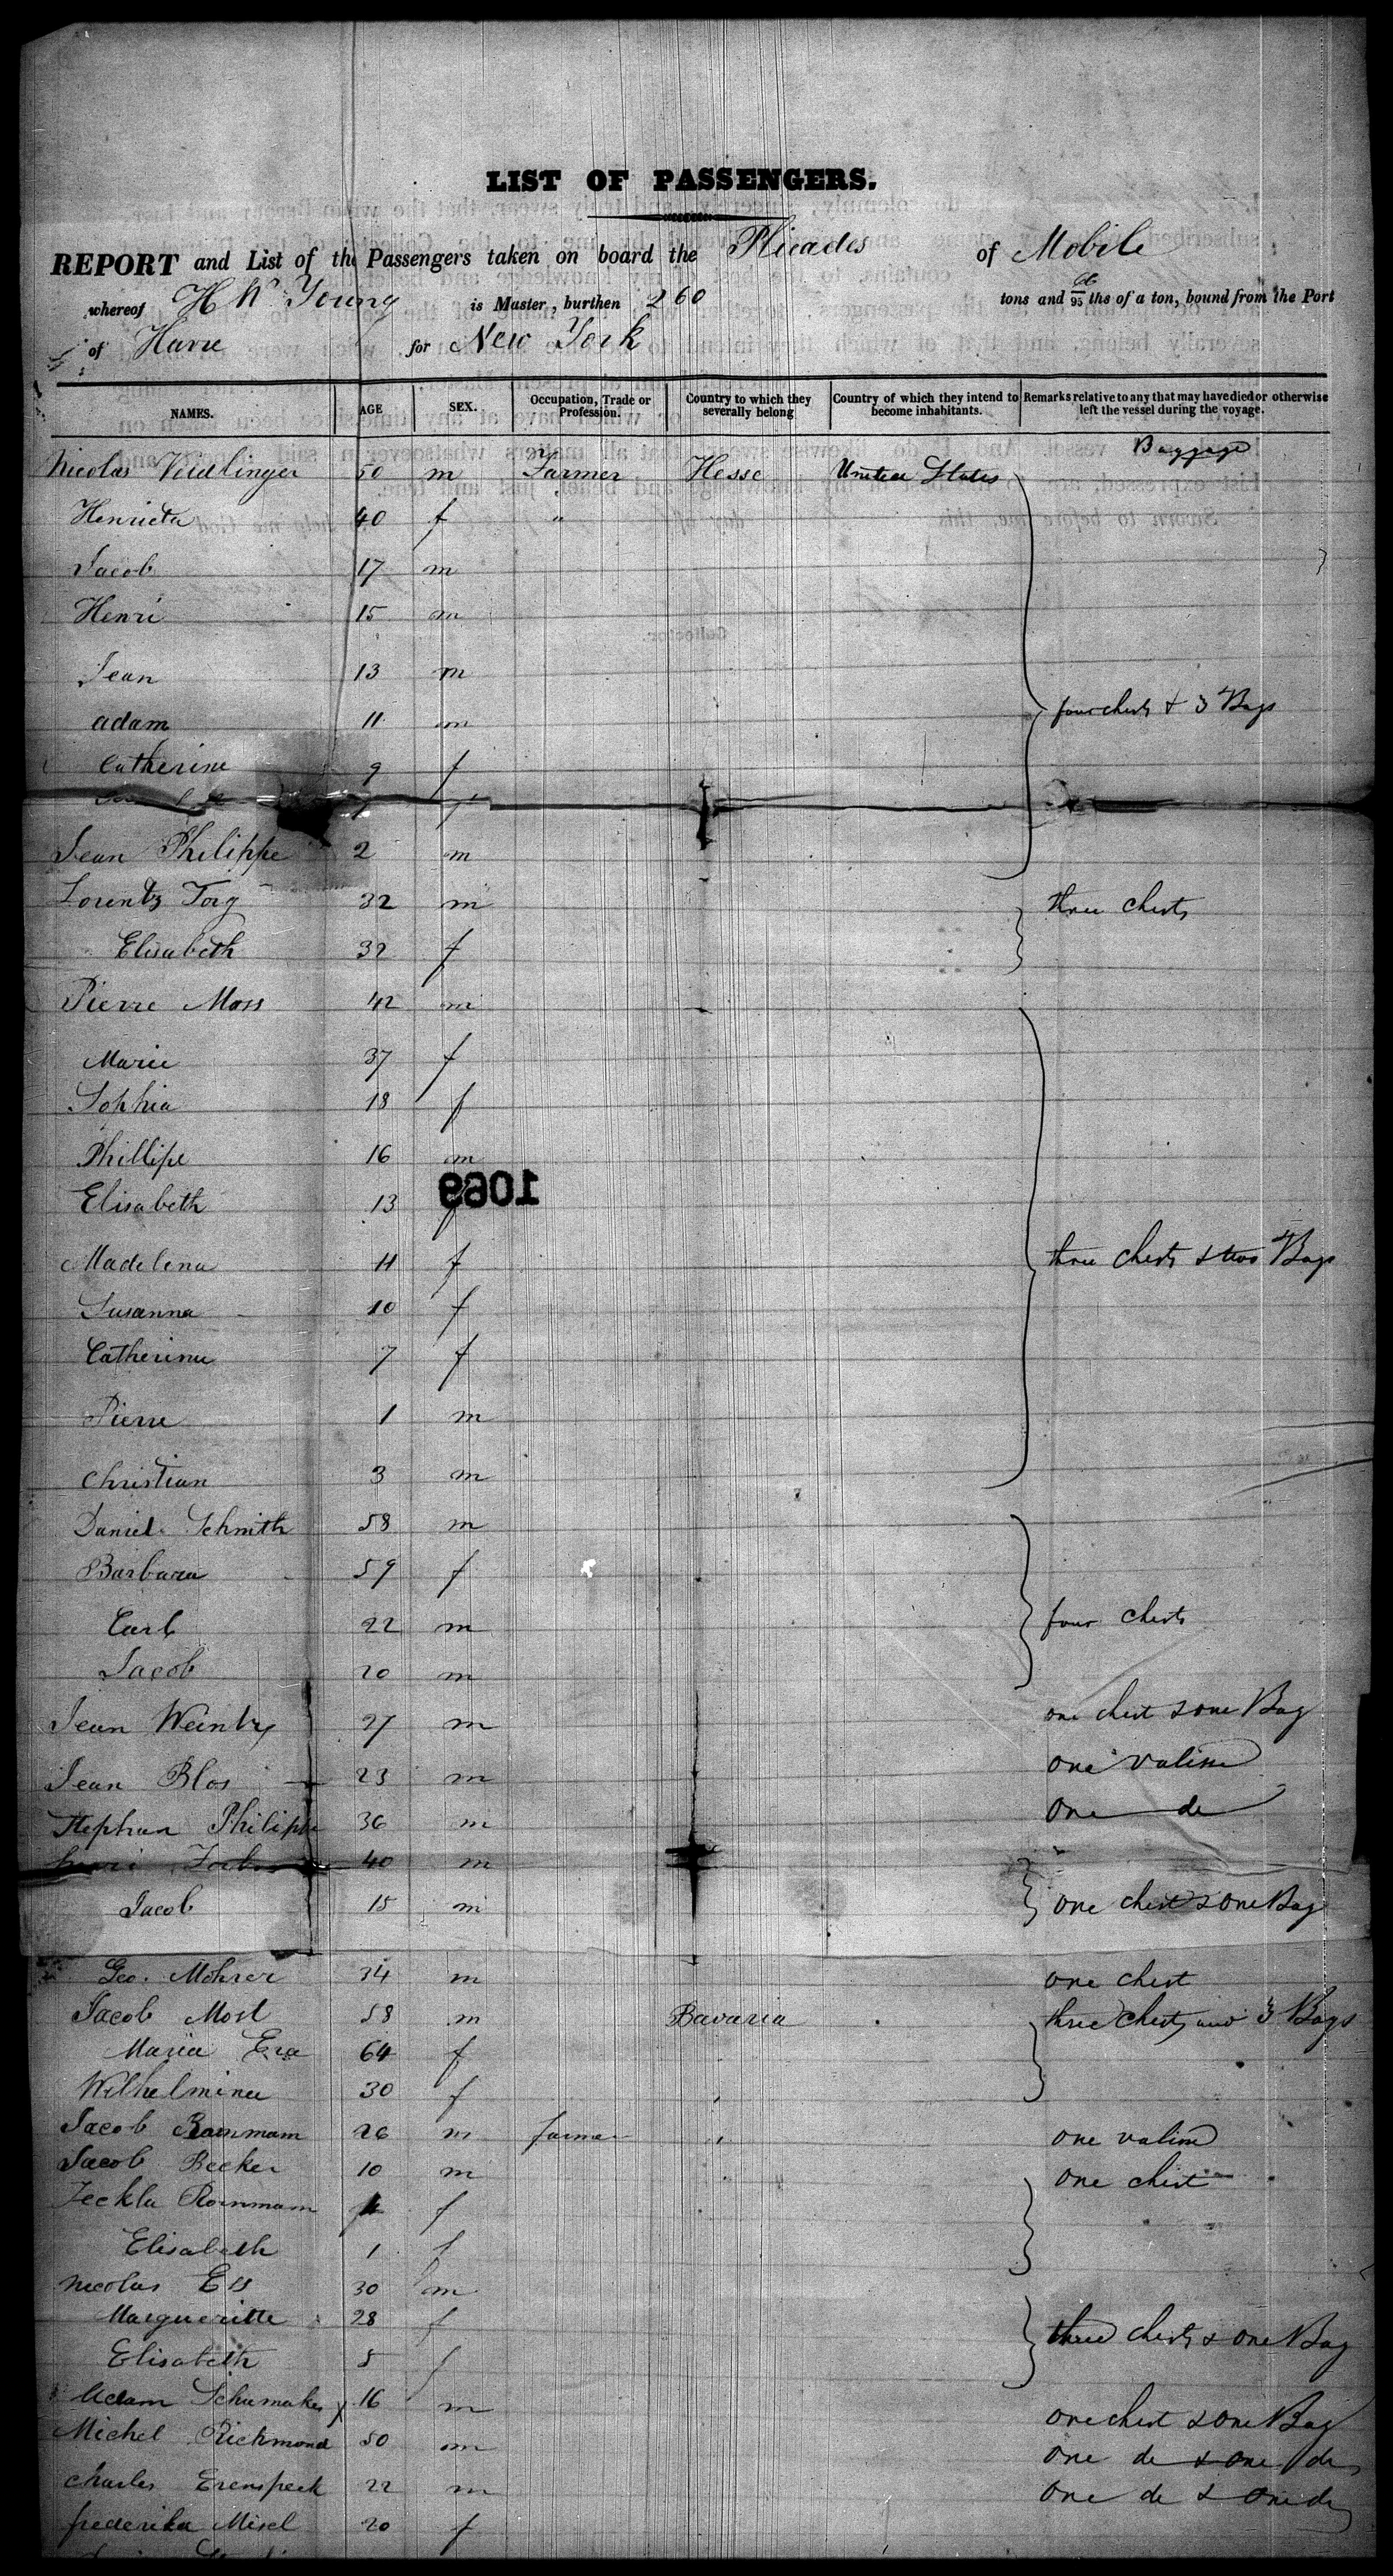 LIST OF PASSENGERS.
REPORT and List of the Passengers taken on board the Pleiades of Mobile
whereof H W Young is Master, burthen 260 tons and 95 ths of a ton, bound from the Port
of Havre for New York
NAMES. AGE SEX. Occupation, Trade or Profession. Country to which they severally belong Country of which they intend to become inhabitants. Remarks relative to any that may have died or otherwise left the vessel during the voyage.
Baggage
Nicolas Veidlinger 50 m Farmer Hesse United States
Henrieta 40 f "
Jacob 17 m
Henri 15 m
Jean 13 m
adam 11 m four chests & 3 Bags
Catherine 9 f
Jean Philippe 2 m
Lorentz Torg 32 m three chests
Elisabeth 32 f
Pierre Moss 42 m
Marie 37 f
Sophia 18 f
Phillipe 16 m
1069
Elisabeth 13
Madelena 11 f three chests & two Bags
Susanna 10 f
Catherine 7 f
Pierre 1 m
Christian 3 m
Daniel Schmith 58 m
Barbara 59 f
Carl 22 m four chests
Jacob 20 m
Jean Weintz 27 m one chest & one Bag
Jean Blos 23 m one valise
Stephan Philippe 36 m One do
40 m
Jacob 15 m one chest & one Bag
Geo. Mohrer 34 m one chest
Jacob Most 58 m Bavaria three chests and 3 Bags
Maria Eva 64 f
Wilhelmina 30 f
Jacob 26 m farmer " one valise
Jacob Becker 10 m one chest
Teckla f
Elisabeth 1 f
Nicolas Ess 30 m
Margueritte 28 f three chests & one Bag
Elisabeth 5 f
Adam Schumaker x 16 m one chest & one Bag
Michel Richmond 50 m one do & one do
Charles Erenspeck 22 m one do & one do
frederika Misel 20 f